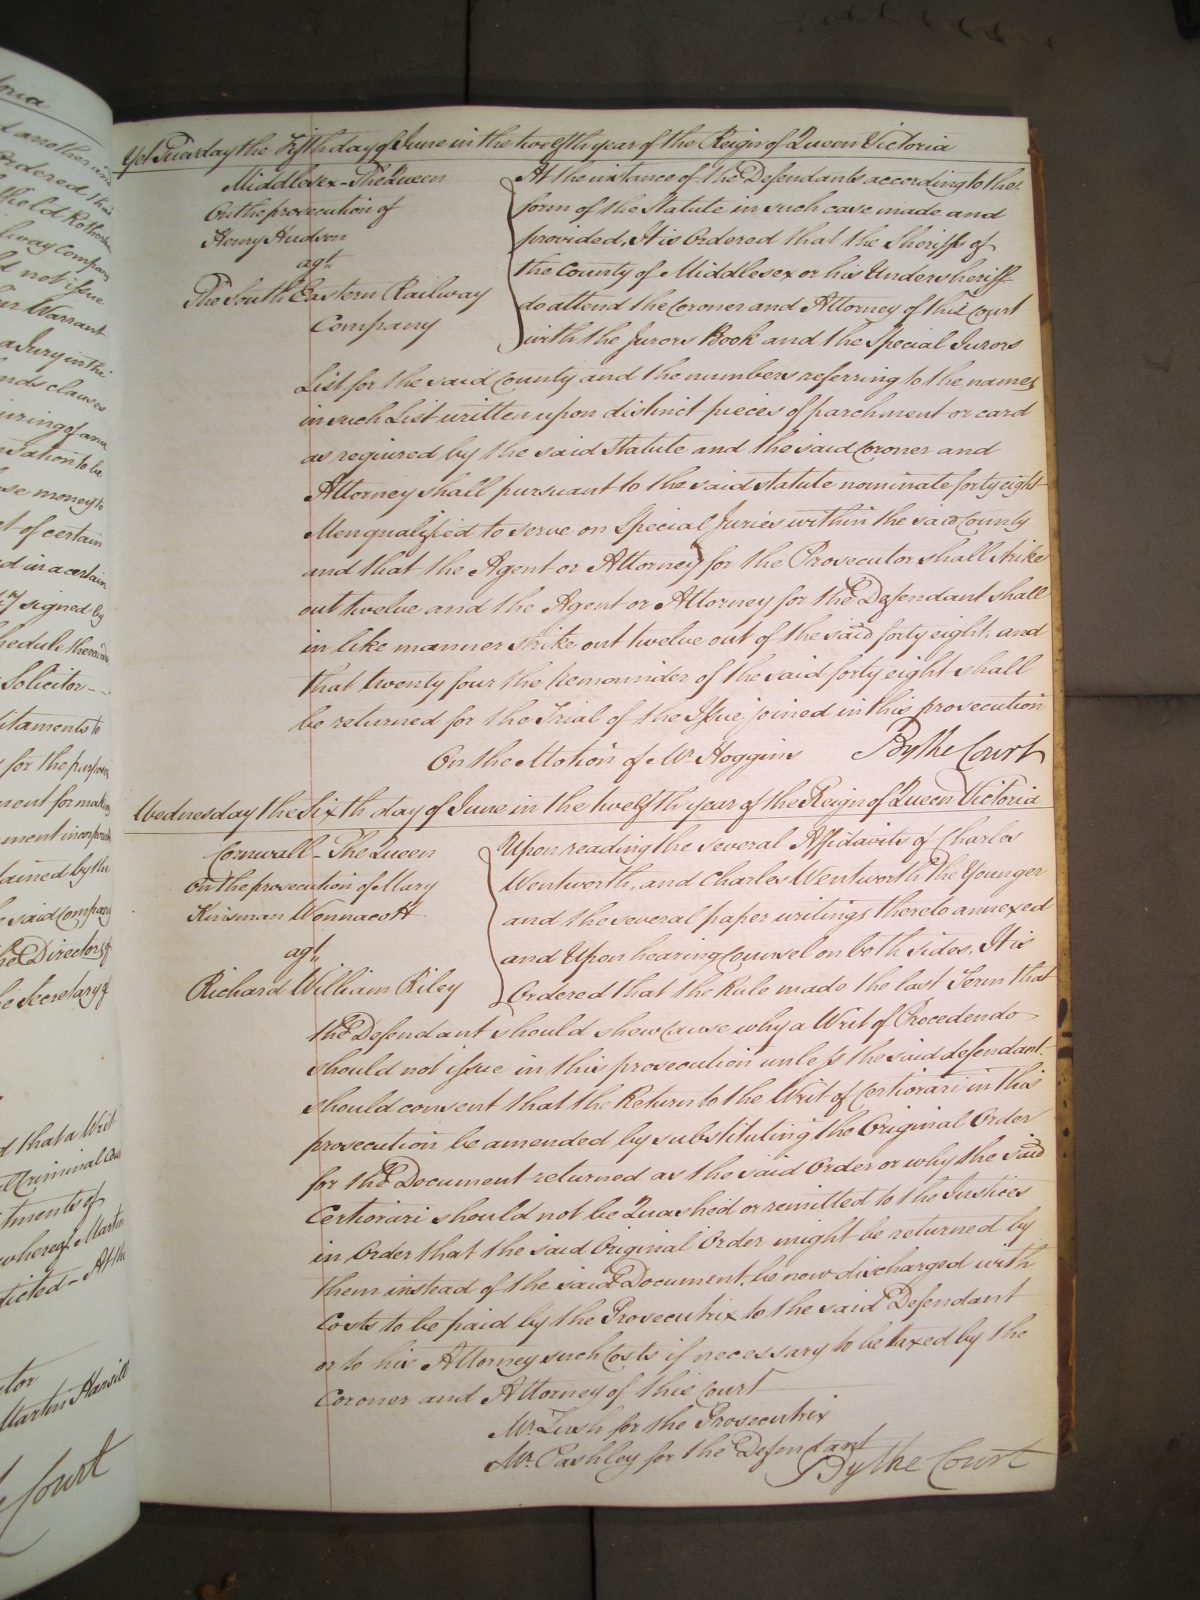 Yet Tuesday the Fifth day of June in the twelfth year of the Reign of Queen Victoria
Middlesex - The Queen
On the prosecution of
Henry Hudson
agt.
The South Eastern Railway
Company
At the instance of the Defendants according to the
form of the Statute in such case made and
provided, It is Ordered that the Sheriff of
the County of Middlesex or his Undersheriff
do attend the Coroner and Attorney of this Court
with the Jurors Book and the Special Jurors
List for the said County and the numbers referring to the names
in such List written upon distinct pieces of parchment or card
as required by the said Statute and the said Coroner and
Attorney shall pursuant to the said statute nominate forty eight
Men qualified to serve on Special Juries within the said County
and that the Agent or Attorney for the Prosecutor shall strike
out twelve and the Agent or Attorney for the Defendant shall
in like manner strike out twelve out of the said forty eight, and
that twenty four the Remainder of the said forty eight shall
be returned for the Trial of the Issue joined in this prosecution
On the Motion of Mr. Hoggins By the Court
Wednesday the Sixth day of June in the twelfth year of the Reign of Queen Victoria
Cornwall - The Queen
On the prosecution of Mary
Kinsman Wonnacott
agt.
Richard William Riley
Upon reading the several Affidavits of Charles
Wentworth, and Charles Wentworth the Younger
and the several paper writings thereto annexed
and Upon hearing Counsel on both sides, It is
Ordered that the Rule made the last Term that
the Defendant should shew cause why a Writ of Procedendo
should not issue in this prosecution unless the said defendant
should consent that the Return to the Writ of Certiorari in this
prosecution be amended by substituting the Original Order
for the Document returned as the said Order or why the said
Certiorari should not be Quashed or remitted to the Justices
in Order that the said Original Order might be returned by
them instead of the said Document, be now discharged with
Costs to be paid by the Prosecutrix to the said Defendant
or to his Attorney such Costs if necessary to be taxed by the
Coroner and Attorney of this Court
Mr. Lush for the Prosecutrix
Mr. Pashley for the Defendant
By the Court